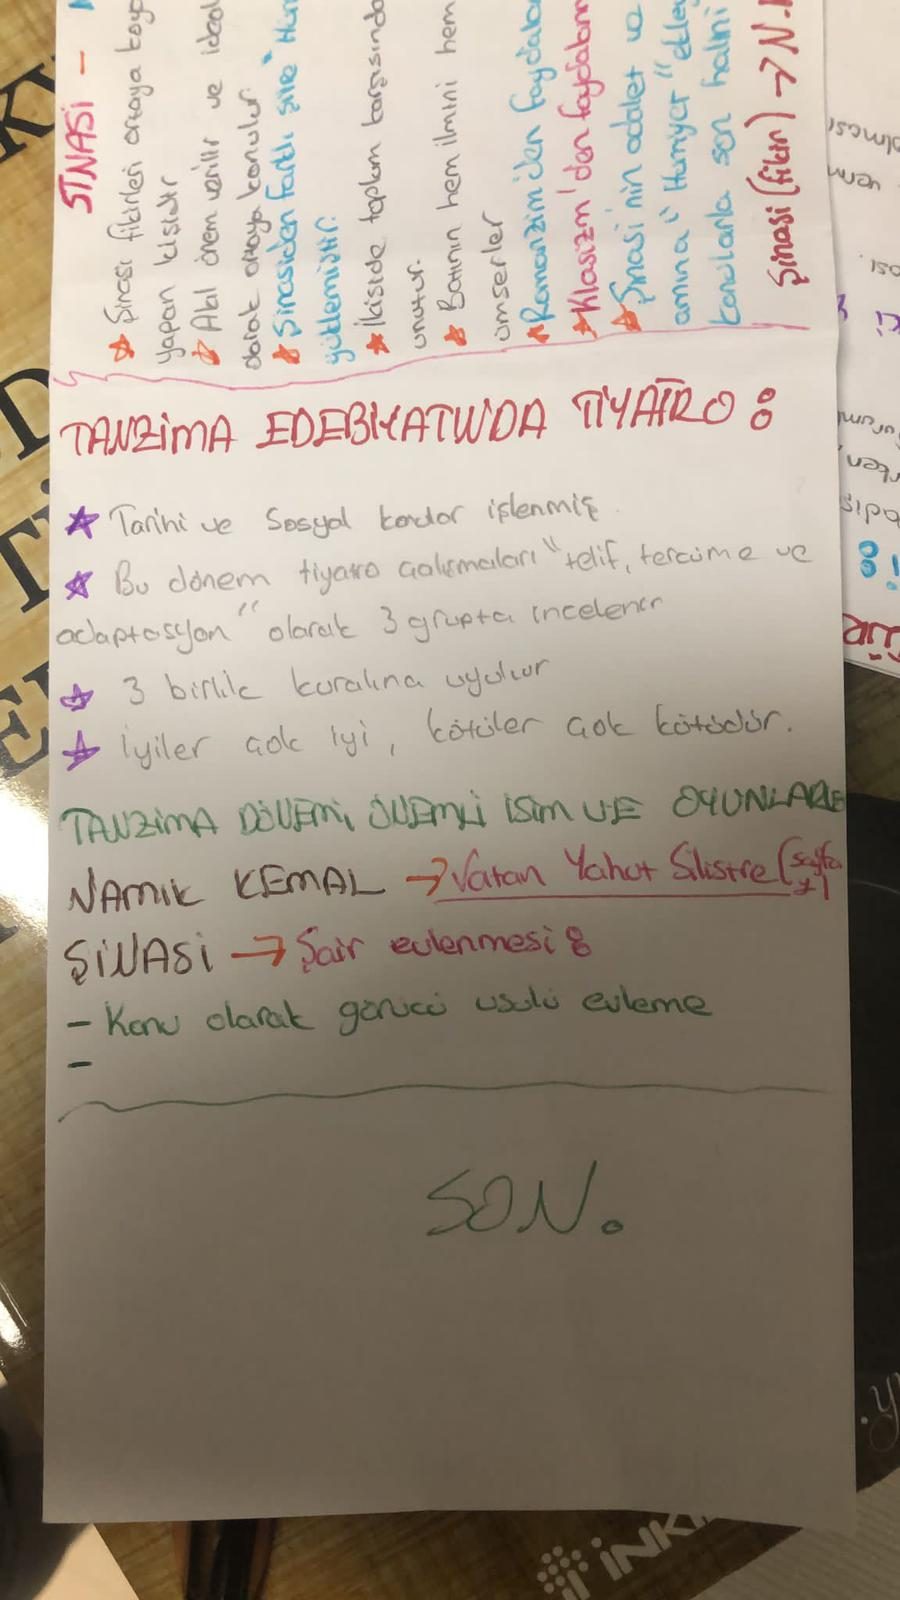 ŞİNASİ –
★ Şinasi fikirleri ortaya koyo
yapan kişidir
★ Akıl önem verilir ve ideal
olarak ortaya konulur.
★ Şinasiden farklı şiire "Hür
yüklemiştir.
★ İkiside toplum karşısında
unutur.
★ Batının hem ilmini hem
ümserler
★ Romanzim'den faydalan
★ Klasizm'den faydalanm
★ Şinasi'nin adalet ve
amına "Hürriyet" ekley
konularla son halini
Şinasi (fikir) → N.
TANZİMA EDEBİYATINDA TİYATRO :
★ Tarihi ve Sosyal konular işlenmiş
★ Bu dönem tiyatro çalışmaları "telif, tercüme ve
adaptasyon" olarak 3 grupta incelenir
★ 3 birlik kuralına uyulur
★ İyiler çok iyi, kötüler çok kötüdür.
TANZİMA DÖNEMİ, ÖNEMLİ İSİM VE OYUNLARI
NAMIK KEMAL → Vatan Yahut Silistre (sayfa
ŞİNASİ → Şair evlenmesi :
– Konu olarak görücü usulü evleme
–
SON.
İNKI